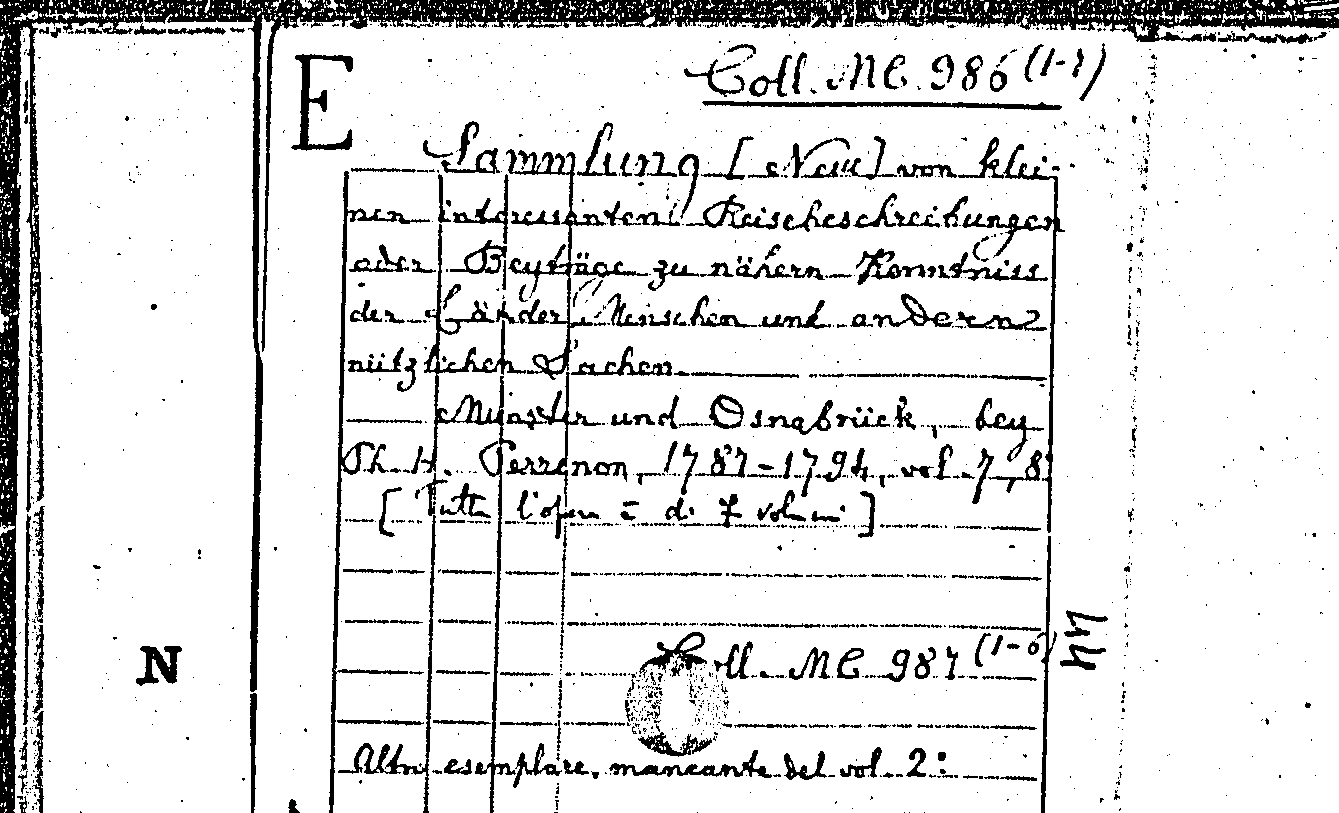 E
Coll. MC. 986 (1-7)
Sammlung [Neue] von klei-
nen interessanten Reisebeschreibungen
oder Beyträge zu nähern Kenntniss
der Länder, Menschen und andern
nützlichen Sachen.
Münster und Osnabrück, bey
Ph. H. Perrenon, 1787-1794, vol. 7, 8°
[Tutta l'opera è di 7 volumi]
Coll. MC 987 (1-6)
N
Altro esemplare, mancante del vol. 2: